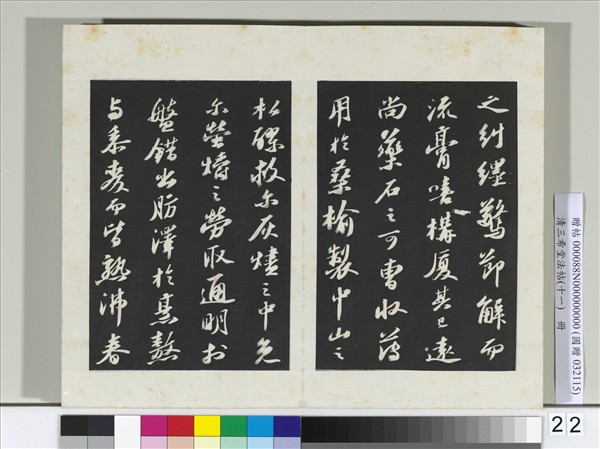 之糾纏驚節解而
流膏嘻構廈其已遠
尚藥石之可曹收薄
用於桑榆製中山之
松醪救尓灰燼之中免
尓螢爝之勞取通明於
盤錯出肪澤於烹熬
与黍麥而皆熟沸舂
贈帖 000088N000000000 (國贈 032115)
清三希堂法帖(十一) 冊
22